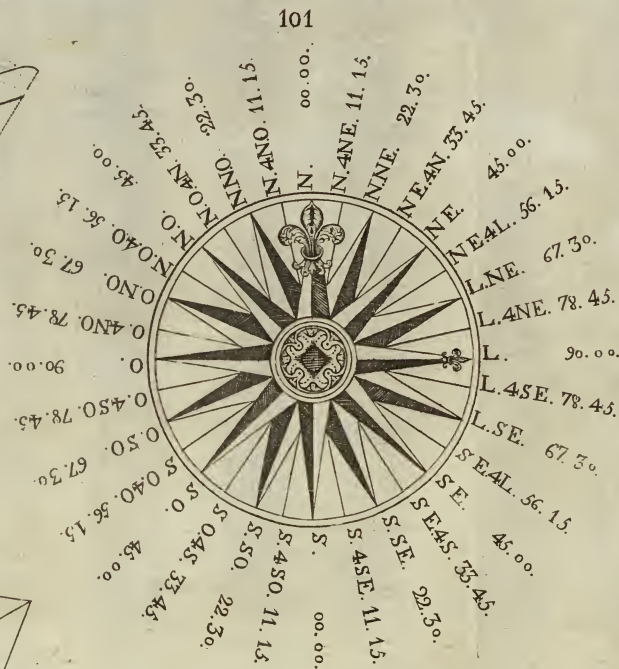 101
N. 00.00.
N.4NE. 11.15.
N.NE. 22.30.
NE4N. 33.45.
NE. 45.00.
NE4L. 56.15.
L.NE. 67.30.
L.4NE. 78.45.
L. 90.00.
L.4SE. 78.45.
L.SE. 67.30.
SE4L. 56.15.
SE. 45.00.
SE4S. 33.45.
S.SE. 22.30.
S.4SE. 11.15.
S. 00.00.
S.4SO. 11.15.
S.SO. 22.30.
SO4S. 33.45.
SO. 45.00.
SO4O. 56.15.
O.SO. 67.30.
O.4SO. 78.45.
O. 90.00.
O.4NO. 78.45.
O.NO. 67.30.
N.O.4O. 56.15.
N.O. 45.00.
N.O.4N. 33.45.
NNO. 22.30.
N.4NO. 11.15.